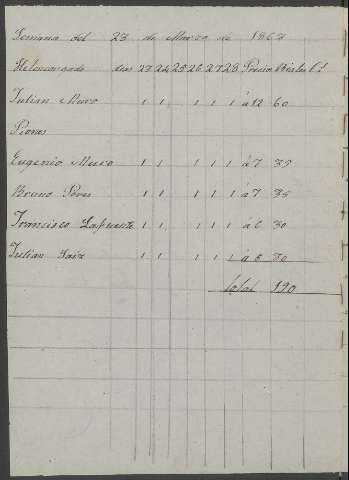 Semana del 23 de Marzo de 1867
El encargado dias 23 24 25 26 27 28 Precio
Julian Muro 1 1 1 1 1 á 12 60
Peones
Eugenio Muro 1 1 1 1 1 á 7 35
Bruno Pérez 1 1 1 1 1 á 7 35
Francisco Lafuente 1 1 1 1 1 á 6 30
Julian Saiz 1 1 1 1 1 á 6 30
total 190